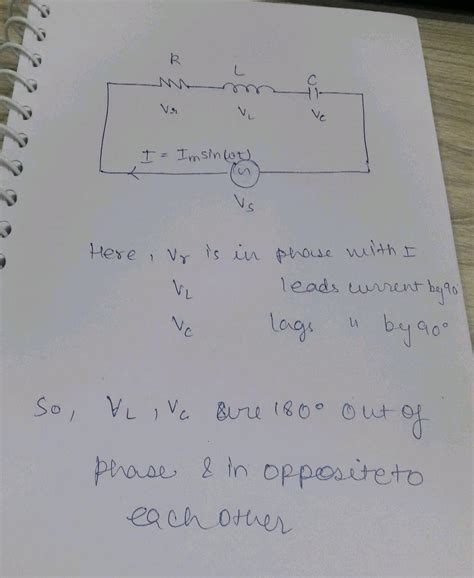 R L C
Vr VL Vc
I = Im sin(ωt)
Vs
Here, Vr is in phase with I
VL leads current by 90°
Vc lags " by 90°
So, VL, Vc are 180° out of
phase & in opposite to
each other